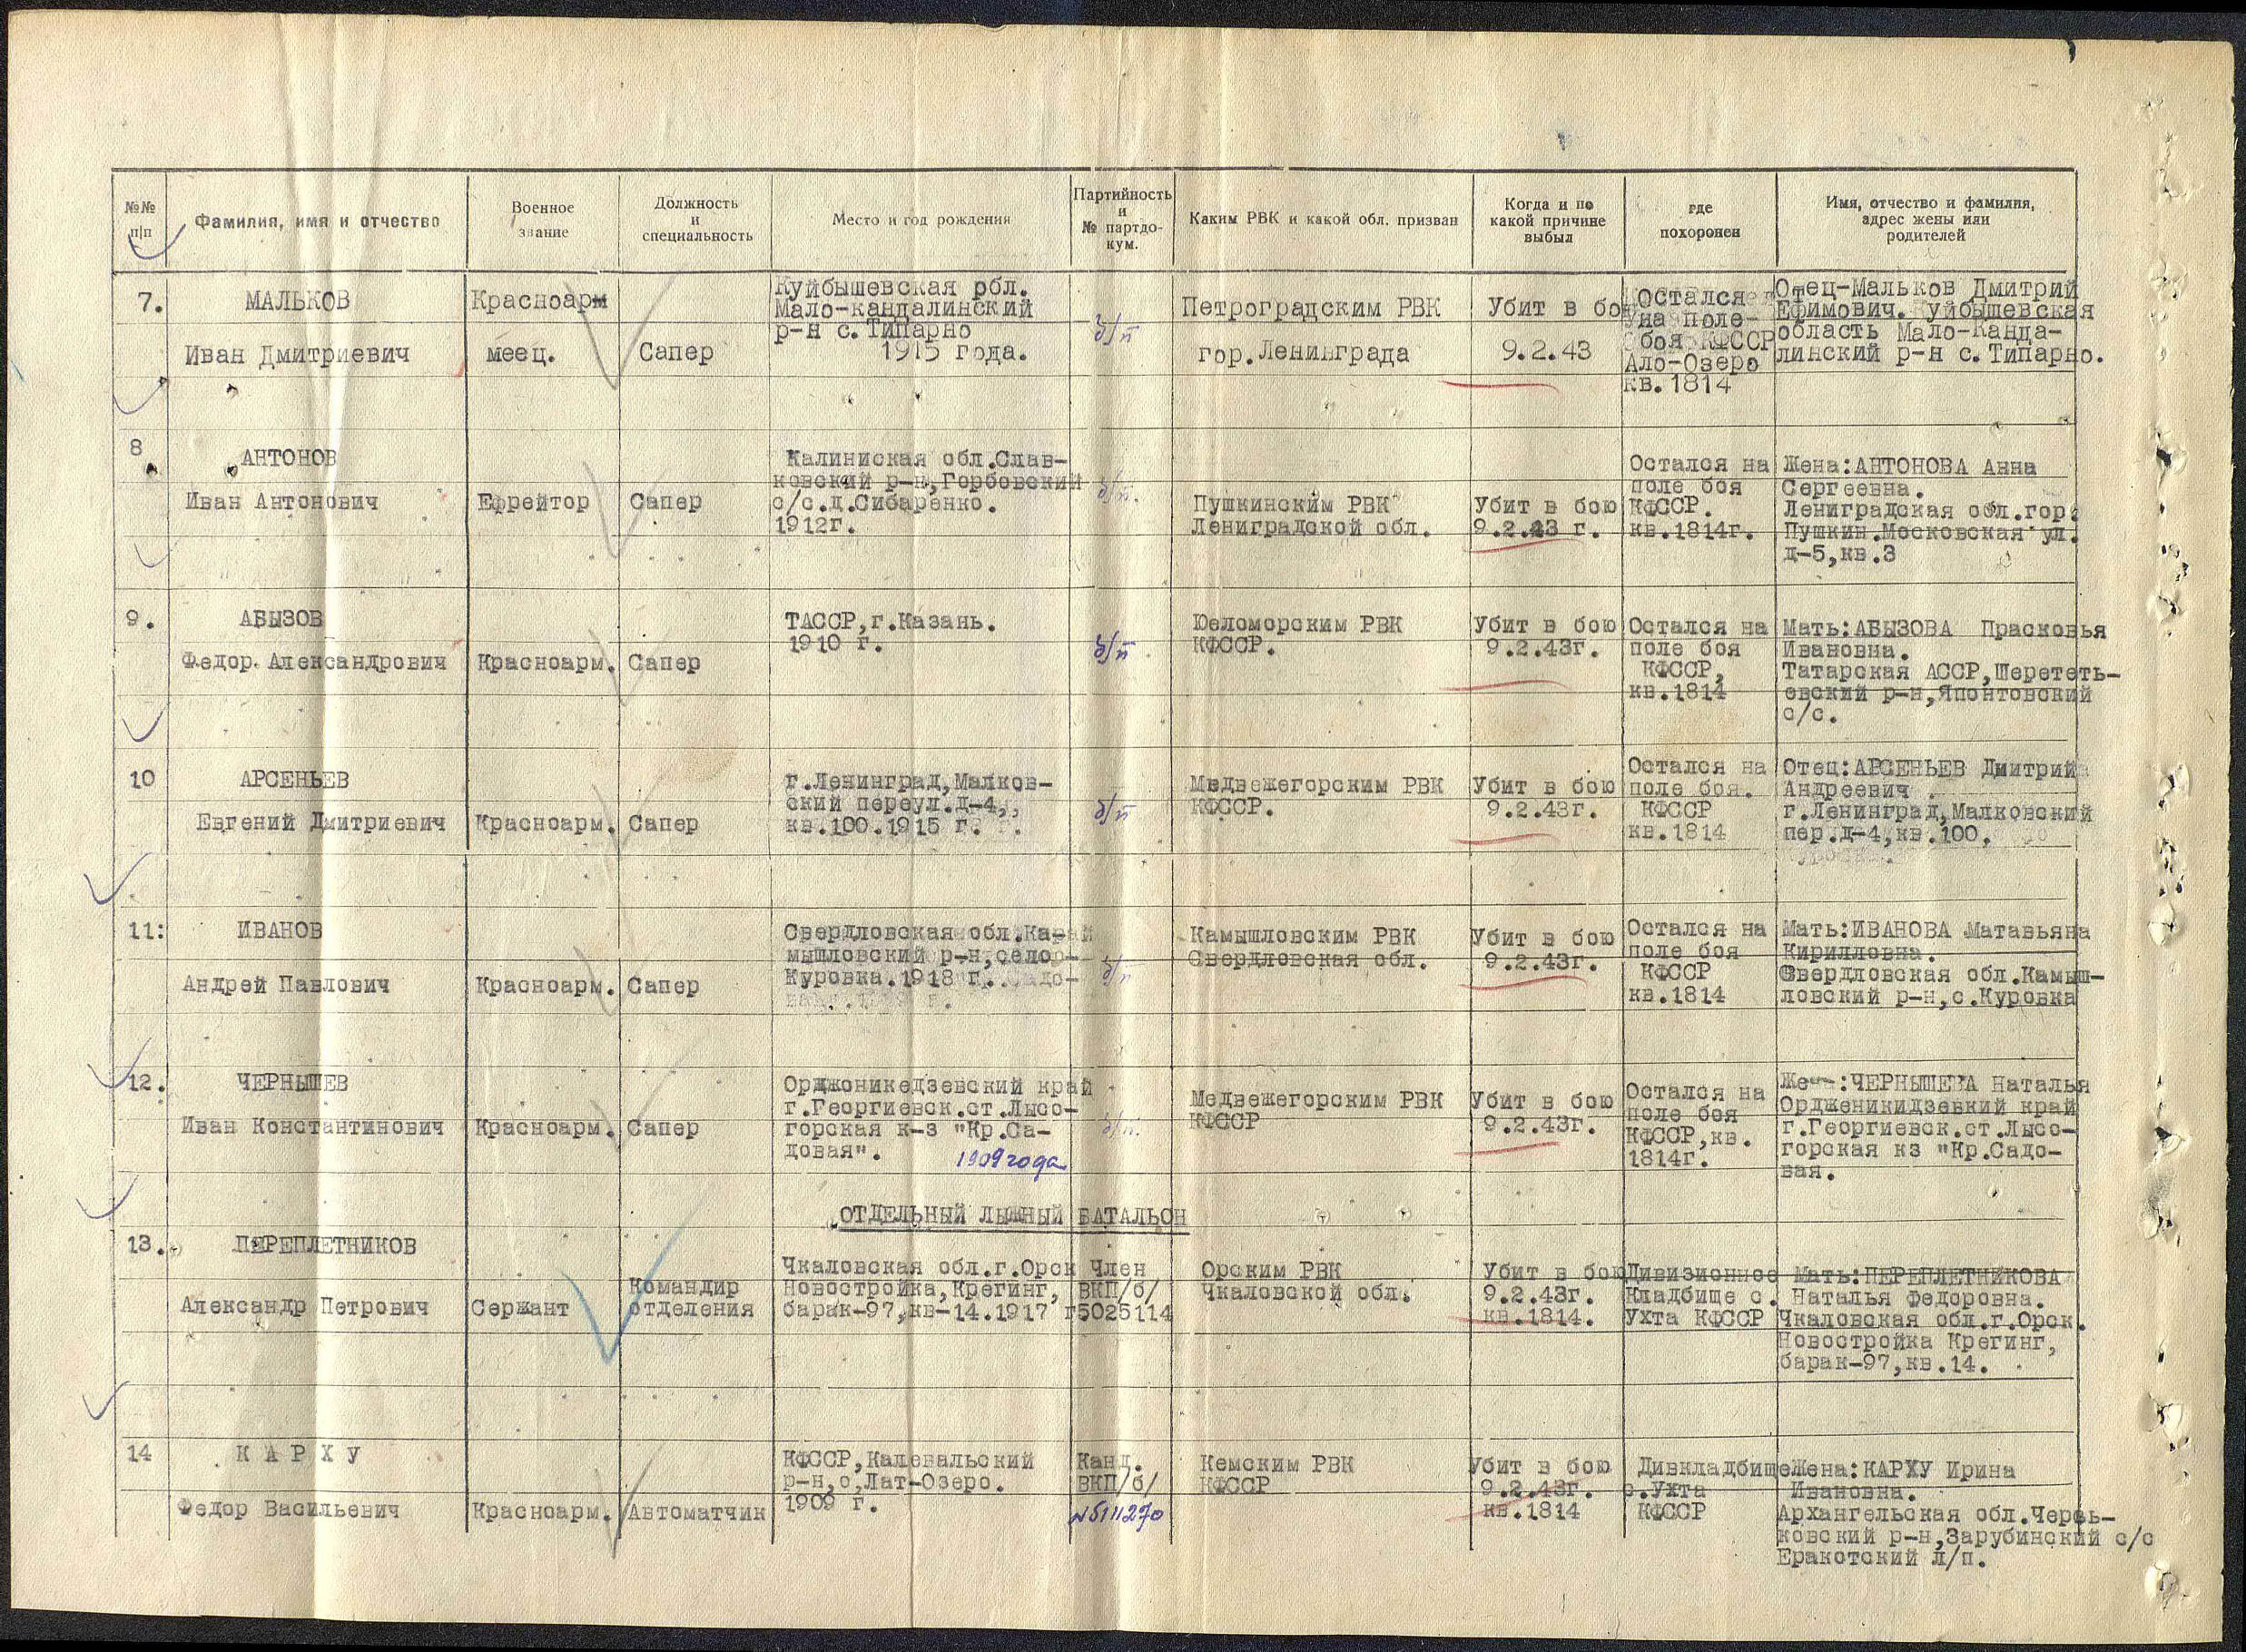 №№ п|п
Фамилия, имя и отчество
Военное звание
Должность и специальность
Место и год рождения
Партийность и № партдо-кум.
Каким РВК и какой обл. призван
Когда и по какой причине выбыл
где похоронен
Имя, отчество и фамилия, адрес жены или родителей
7.
МАЛЬКОВ
Иван Дмитриевич
Красноарм
меец.
Сапер
Куйбышевская рбл.
Мало-кандалинский
р-н с.Типарно
1915 года.
б/п
Петроградским РВК
гор.Ленинграда
Убит в бою
9.2.43
Остался
на поле-
боя КФССР
Ало-Озеро
кв.1814
Отец-Мальков Дмитрий
Ефимович.Куйбышевская
область Мало-Канда-
линский р-н с.Типарно.
8
АНТОНОВ
Иван Антонович
Ефрейтор
Сапер
Калиниская обл.Слав-
ковский р-н,Горбовский
с/с.д.Сибаренко.
1912г.
б/п.
Пушкинским РВК
Лениградской обл.
Убит в бою
9.2.43 г.
Остался на
поле боя
КФССР.
кв.1814г.
Жена:АНТОНОВА Анна
Сергеевна.
Лениградская обл.гор.
Пушкин.Московская ул.
д-5,кв.3
9.
АБЫЗОВ
Федор.Александрович
Красноарм.
Сапер
ТАССР,г.Казань.
1910 г.
б/п
Юеломорским РВК
КФССР.
Убит в бою
9.2.43г.
Остался на
поле боя
КФССР,
кв.1814
Мать:АБЫЗОВА Прасковья
Ивановна.
Татарская АССР,Шерететь-
евский р-н,Японтовский
с/с.
10
АРСЕНЬЕВ
Евгений Дмитриевич
Красноарм.
Сапер
г.Ленинград,Малков-
ский переул.д-4,
кв.100.1915 г.
б/п
Медвежегорским РВК
КФССР.
Убит в бою
9.2.43г.
Остался на
поле боя.
КФССР
кв.1814
Отец:АРСЕНЬЕВ Дмитрий
Андреевич
г.Ленинград,Малковский
пер.д-4,кв.100.
11:
ИВАНОВ
Андрей Павлович
Красноарм.
Сапер
Свердловская обл.Ка-
мышловский р-н,село
Куровка.1918 г.
б/п
Камышловским РВК
Свердловская обл.
Убит в бою
9.2.43г.
Остался на
поле боя
КФССР
кв.1814
Мать:ИВАНОВА Матавьяна
Кирилловна.
Свердловская обл.Камыш-
ловский р-н,с.Куровка
12.
ЧЕРНЫШЕВ
Иван Константинович
Красноарм.
Сапер
Орджоникедзевский край
г.Георгиевск.ст.Лысо-
горская к-з "Кр.Са-
довая".
1909 года
б/п.
Медвежегорским РВК
КФССР
Убит в бою
9.2.43г.
Остался на
поле боя
КФССР,кв.
1814г.
Же--:ЧЕРНЫШЕВА Наталья
Ордженикидзевкий край
г.Георгиевск.ст.Лысо-
горская кз "Кр.Садо-
вая.
ОТДЕЛЬНЫЙ ЛЫЖНЫЙ БАТАЛЬОН
13.
ПЕРЕПЛЕТНИКОВ
Александр Петрович
Сержант
Командир
отделения
Чкаловская обл.г.Орск
Новостройка,Крегинг,
барак-97,кв-14.1917 г
Член
ВКП/б/
5025114
Орским РВК
Чкаловской обл.
Убит в бою
9.2.43г.
кв.1814.
Дивизионное
Кладбище с.
Ухта КФССР
Мать:ПЕРЕПЛЕТНИКОВА
Наталья Федоровна.
Чкаловская обл.г.Орск.
Новостройка Крегинг,
барак-97,кв.14.
14
К А Р Х У
Федор Васильевич
Красноарм.
Автоматчик
КФССР,Калевальский
р-н,с,Лат-Озеро.
1909 г.
Канд.
ВКП/б/
№5111270
Кемским РВК
КФССР
Убит в бою
9.2.43г.
кв.1814
Дивкладбище
с.Ухта
КФССР
Жена:КАРХУ Ирина
Ивановна.
Архангельская обл.Черевь-
ковский р-н,Зарубинский с/с
Еракотский л/п.